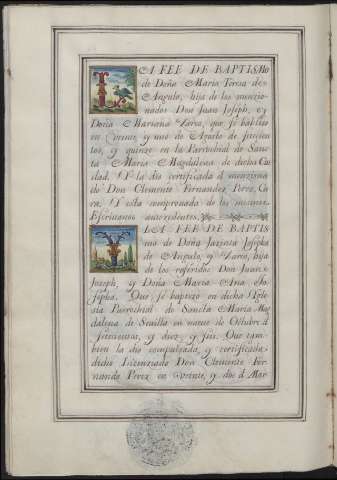 LA FEE DE BAPTISMO
de Doña Maria Teresa de
Angulo, hija de los mencio-
nados Don Juan Joseph, y
Doña Mariana que se baptizo
en veinte, y uno de Agosto de setecien
tos, y quinze en la Parrochial de Sanc-
ta Maria Magdalena de dicha Ciu
dad. I la dio certificada el menziona
do Don Clemente Fernandez Perez, Cu
ra. I esta comprovada de los mismos
Escrivanos antecedentes.
I LA FEE DE BAPTIS
mo de Doña Jazinta Josepha
de Angulo, y hija
de los referidos Don Juan
Joseph, y Doña Maria Ana Jo-
sepha. Que se baptizo en dicha Igle
sia Parrochial de Sancta Maria Mag
dalena de Sevilla en nueve de Octubre d
setecientos, y diez, y seis. Que tam
bien la dio compulsada, y certificada
dicho Licenciado Don Clemente Fer-
nando Perez en veinte, y dos d Mar